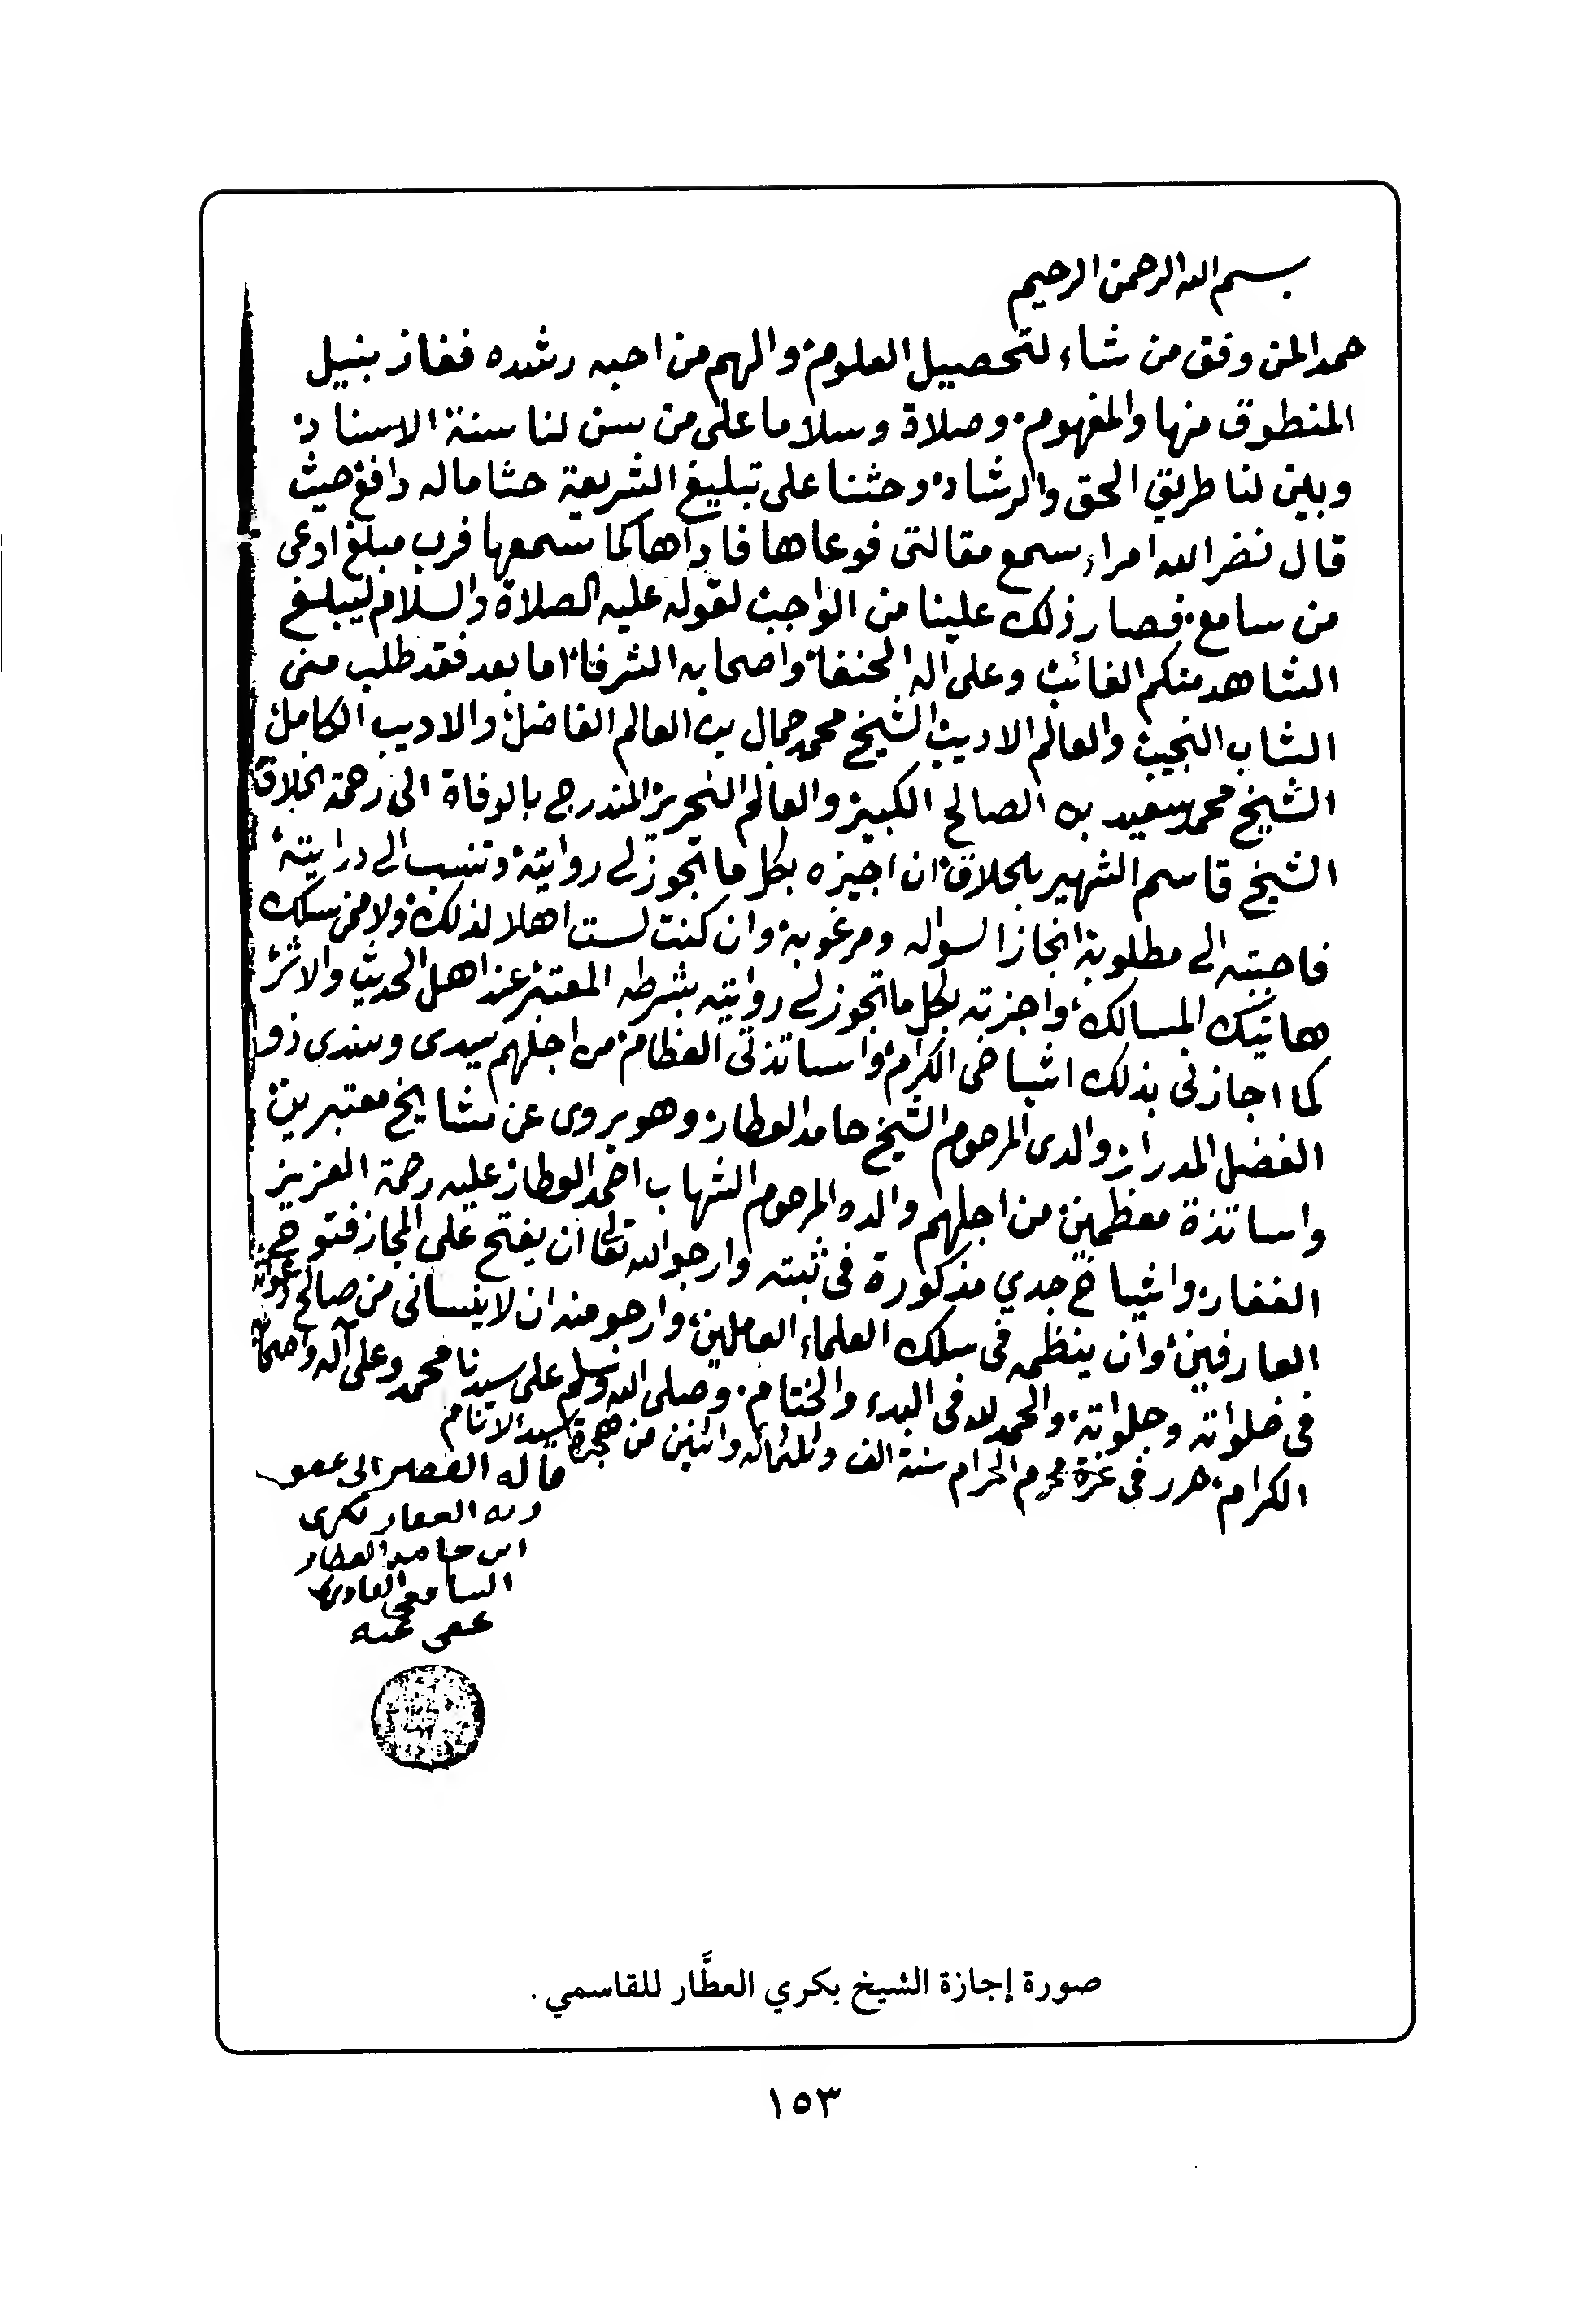 بسم الله الرحمن الرحيم
حمدا لمن وفق من شاء لتحصيل العلوم والهم من احبه رشده ففاز بنيل
المنطوق منها والمفهوم وصلاة وسلاما على من سن لنا سنة الاسناد
وبين لنا طريق الحق والرشاد وحثنا على تبليغ الشريعة حثا ماله دافع حيث
قال نضر الله امراء سمع مقالتى فوعاها فاداها كما سمعها فرب مبلغ اوعى
من سامع فصار ذلك علينا من الواجب لقوله عليه الصلاة والسلام ليبلغ
الشاهد منكم الغائب وعلى اله الحنفا واصحابه الشرفا اما بعد فقد طلب منى
الشاب النجيب والعالم الاديب الشيخ محمد جمال بن العالم الفاضل والاديب الكامل
الشيخ محمد سعيد بن الصالح الكبير والعالم النحرير المندرج بالوفاة الى رحمة الخلاق
الشيخ قاسم الشهير بالحلاق ان اجيزه بكل ما تجوز لي روايته وتنسب الي درايته
فاجبته الى مطلوبه انجازا لسواله ومرغوبه وان كنت لست اهلا لذلك ولا ممن سلك
هاتيك المسالك واجزته بكل ما تجوز لي روايته بشرطه المعتبر عند اهل الحديث والاثر
كما اجازنى بذلك اشياخى الكرام واساتذتى العظام من اجلهم سيدى وسندى ذو
الفضل المدرار والدى المرحوم الشيخ حامد العطار وهو يروى عن مشايخ معتبرين
واساتذة معظمين من اجلهم والده المرحوم الشهاب احمد العطار عليه رحمة العزيز
الغفار واشياخ جدي مذكورة فى ثبته وارجو الله تعالى ان يفتح على المجاز فتوح
العارفين وان ينظمه فى سلك العلماء العاملين وارجو منه ان لا ينسانى من صالح دعواته
فى خلواته وجلواته والحمد لله فى البدء والختام وصلى الله وسلم على سيدنا محمد وعلى آله واصحابه
الكرام حرر فى غرة محرم الحرام سنة الف وثلثمائه واثنين من هجرة سيد الانام
قاله الفقير الى عفو
ربه الغفار بكرى
ابن حامد العطار
الشافعى القادرى
عفى عنه
صورة إجازة الشيخ بكري العطَّار للقاسمي .
١٥٣